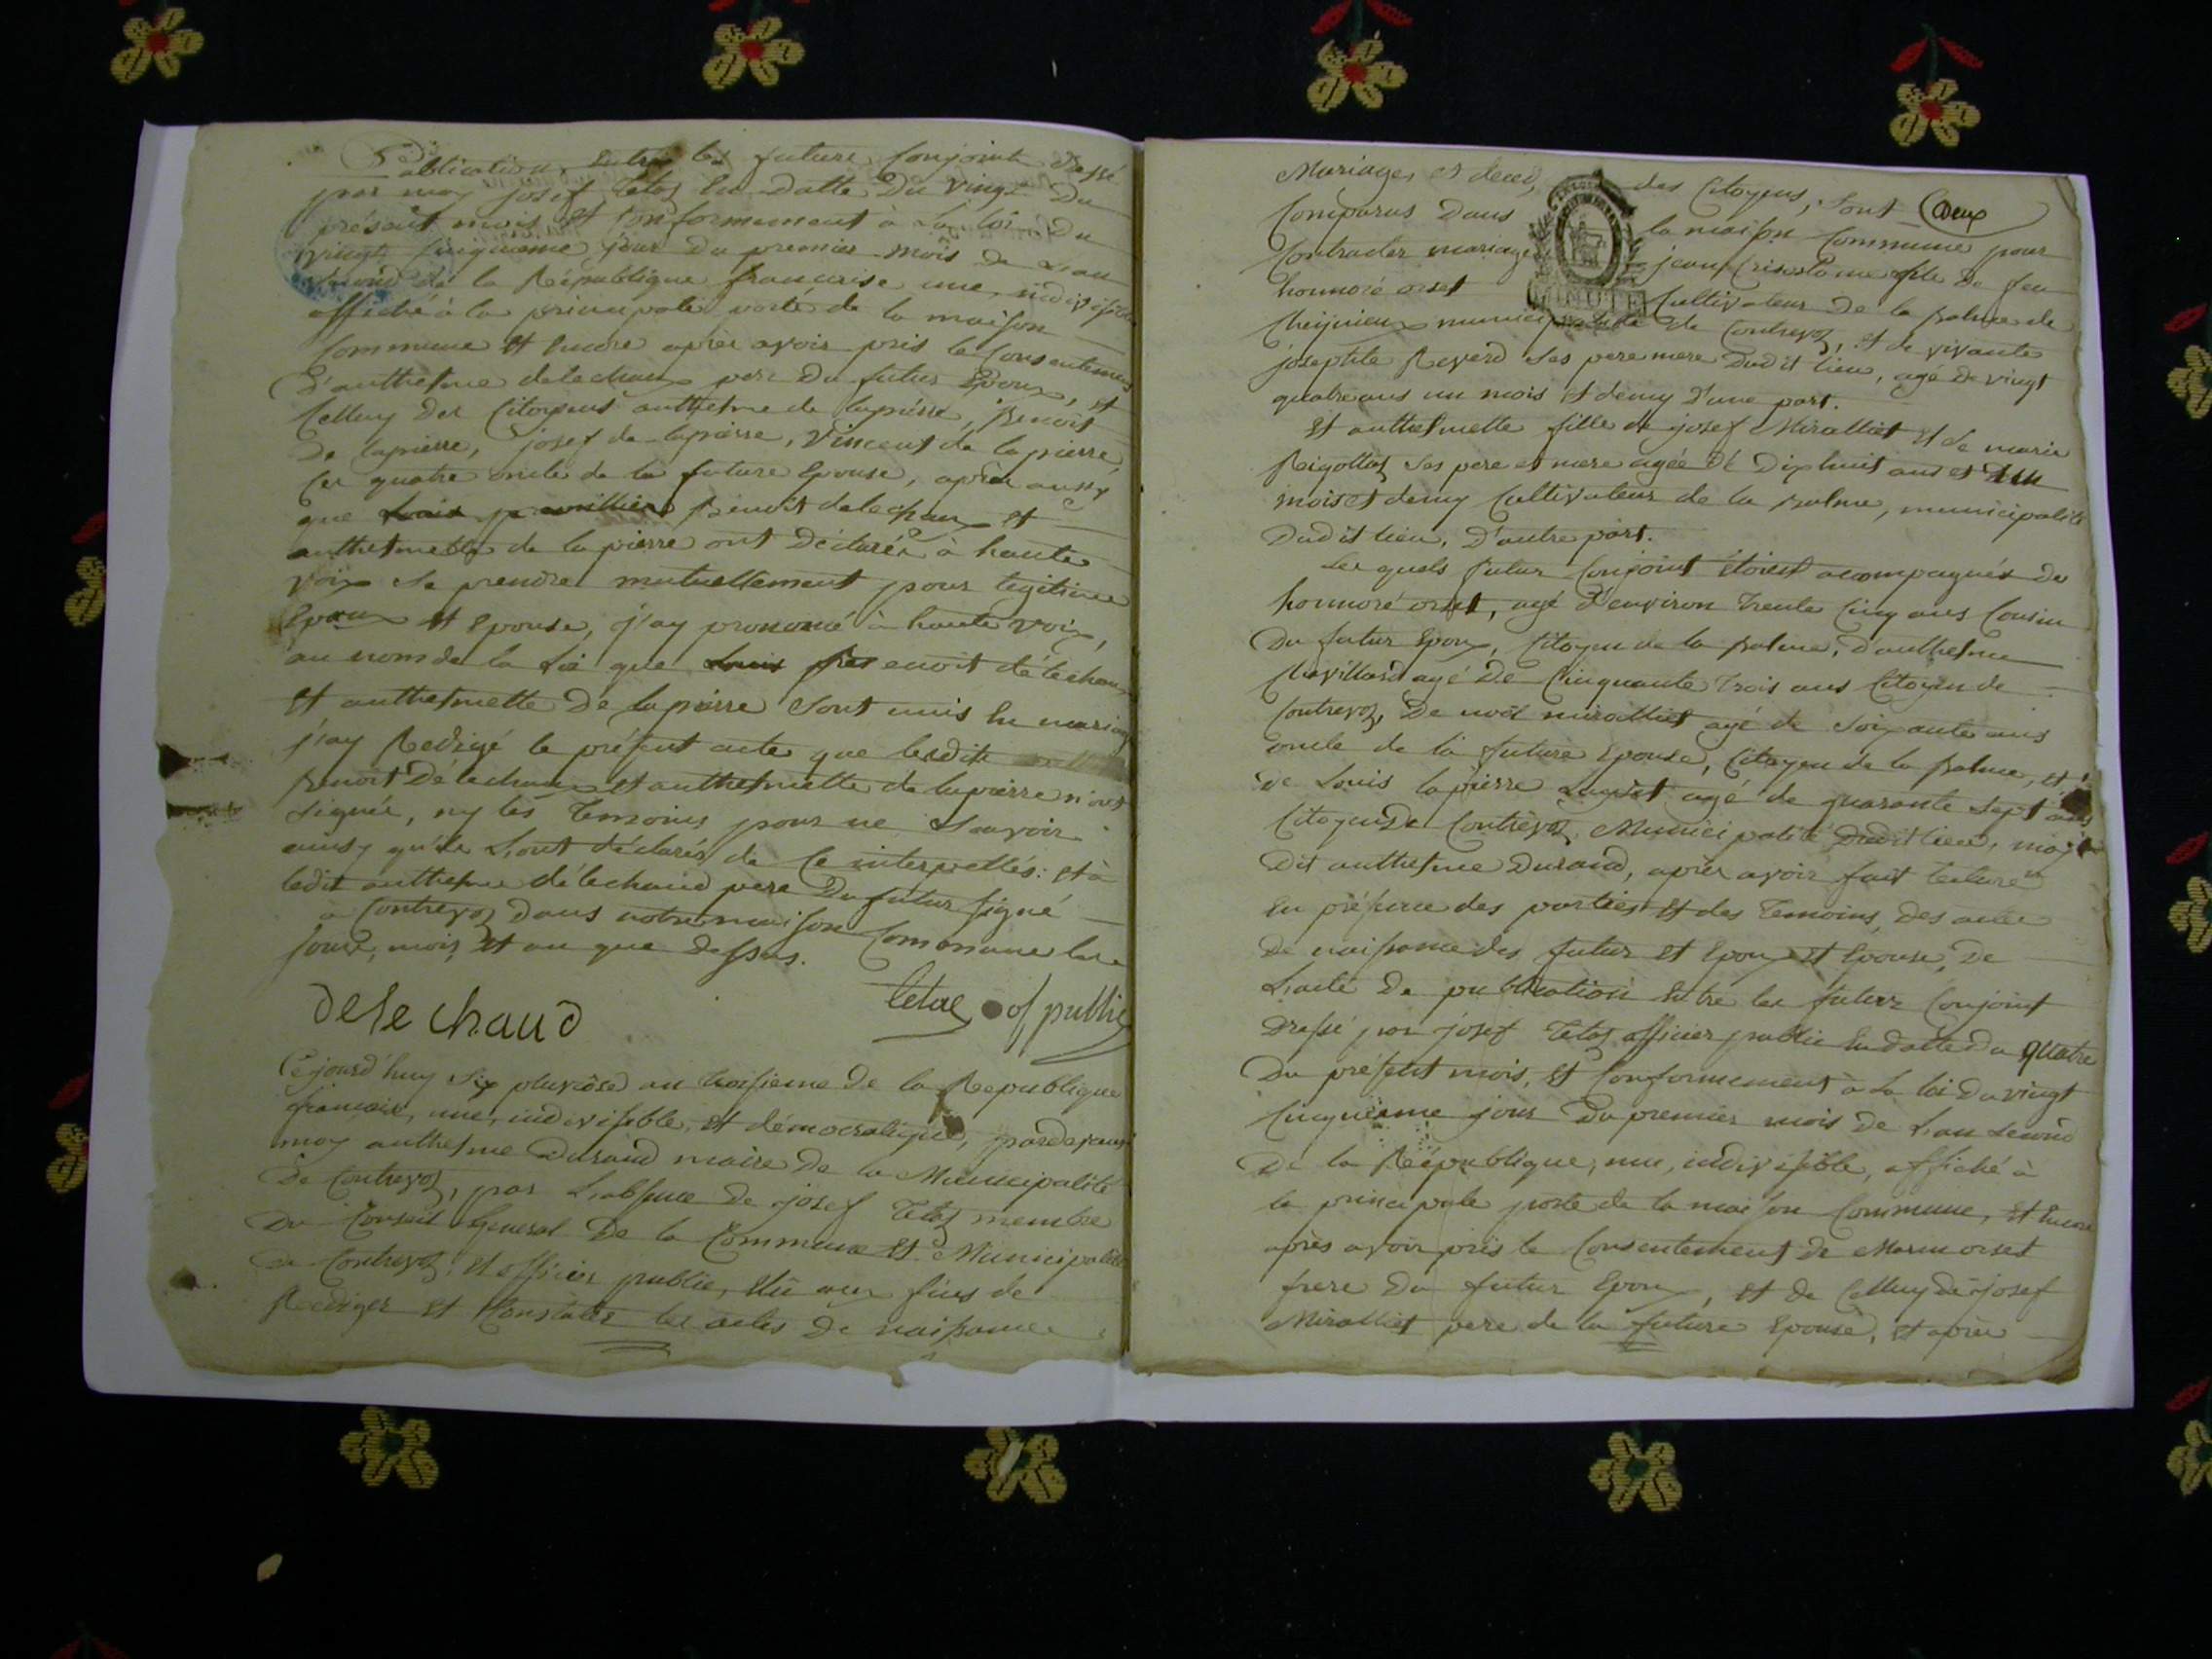 Publication, entre les futurs conjoint dressé
par moy josef Tetaz En datte Du vingt Du
présent mois et conformement à la loi Du
vingt cinquieme jour Du premier mois De L'an
second de la République francaise une, indivisible
affiché à la principale porte de la maison
Commune et Encore après avoir pris le Consentement
D'anthelme delechaux pere Du futur Epoux, et
Celluy Des Citoyens anthelme de lapierre, Benoit
De lapierre, josef de lapierre, Vincent de lapierre,
Ces quatre oncle de la future Epouse, après aussy
que Benoit delechaux et
anthelmette de lapierre ont Déclarés à haute
voix Se prendre mutuellement pour légitime
Epoux et Epouse, j'ay prononcé à haute voix,
au nom de la Loi que enoit délechaux
et anthelmette De lapierre Sont unis En mariage
j'ay Redigé le présent acte que lesdits
Benoit Délechaux et anthelmette de lapierre n'ont
Signés, ny les Temoins pour ne Sçavoir
ainsy qu'ils L'ont déclarés de Ce interpellés: et à
ledit anthelme délechaud pere Du futur Signé
à Contrevoz Dans notre maison Commune les
jour, mois et an que dessus.
delechaud
Tetaz of public
Cejourd'huy Six pluviôse an troisieme De la République
francaise, une, indivisible, et démocratique, pardevant
moy anthelme Durand maire De la Municipalité
De Contrevoz, par L'absence De josef Tetaz membre
Du Conseil General De la Commune et Municipalité
De Contrevoz, et officier public, Elû aux fins de
Rediger et Constater les actes De naissance
Mariages et deces, des Citoyens, Sont Deux
Comparus Dans la maison Commune pour
Contracter mariage jean Crisostome fils De feu
honnoré orset Cultivateur De la Balme de
Cheignieux municipalité de Contrevoz, et de vivante
josephte Reverd Ses pere mere Dudit lieu, agé De vingt
quatre ans un mois et demy D'une part.
Et anthelmette fille de josef Miralliet et de marie
Rigollaz Ses pere et mere agée De Dixhuit ans et un
mois et demy Cultivateur de la Balme, municipalité
Dudit lieu, D'autre part.
Les quels futur Conjoint étoient acompagnés De
honnoré orset, agé D'environ trente Cinq ans Cousin
Du futur Epoux, Citoyen de la Balme, D'anthelme
Chavillard agé De Cinquante trois ans Citoyen de
Contrevoz, De noël miralliet agé de Soixante ans
oncle de la future Epouse, Citoyen de la Balme, et
De Louis lapierre agé de quarante Sept ans
Citoyen De Contrevoz Municipalité Dudit lieu, moy
Dit anthelme Durand, après avoir fait lecture
En présence des parties et des Temoins, Des actes
De naissance des futur et Epoux et Epouse, De
L'acte De publication Entre les futurs Conjoint
Dressé par josef Tetaz officier public En datte Du quatre
Du présent mois, et Conformement à la loi Du vingt
Cinquieme jour Du premier mois De L'an Second
De la République, une, indivisible, affiché à
la principale porte de la maison Commune, et Encore
après avoir pris le Consentement de orset
frere Du futur Epoux, et de Celluy de josef
Miralliet pere de la future Epouse, et après
MINUTE